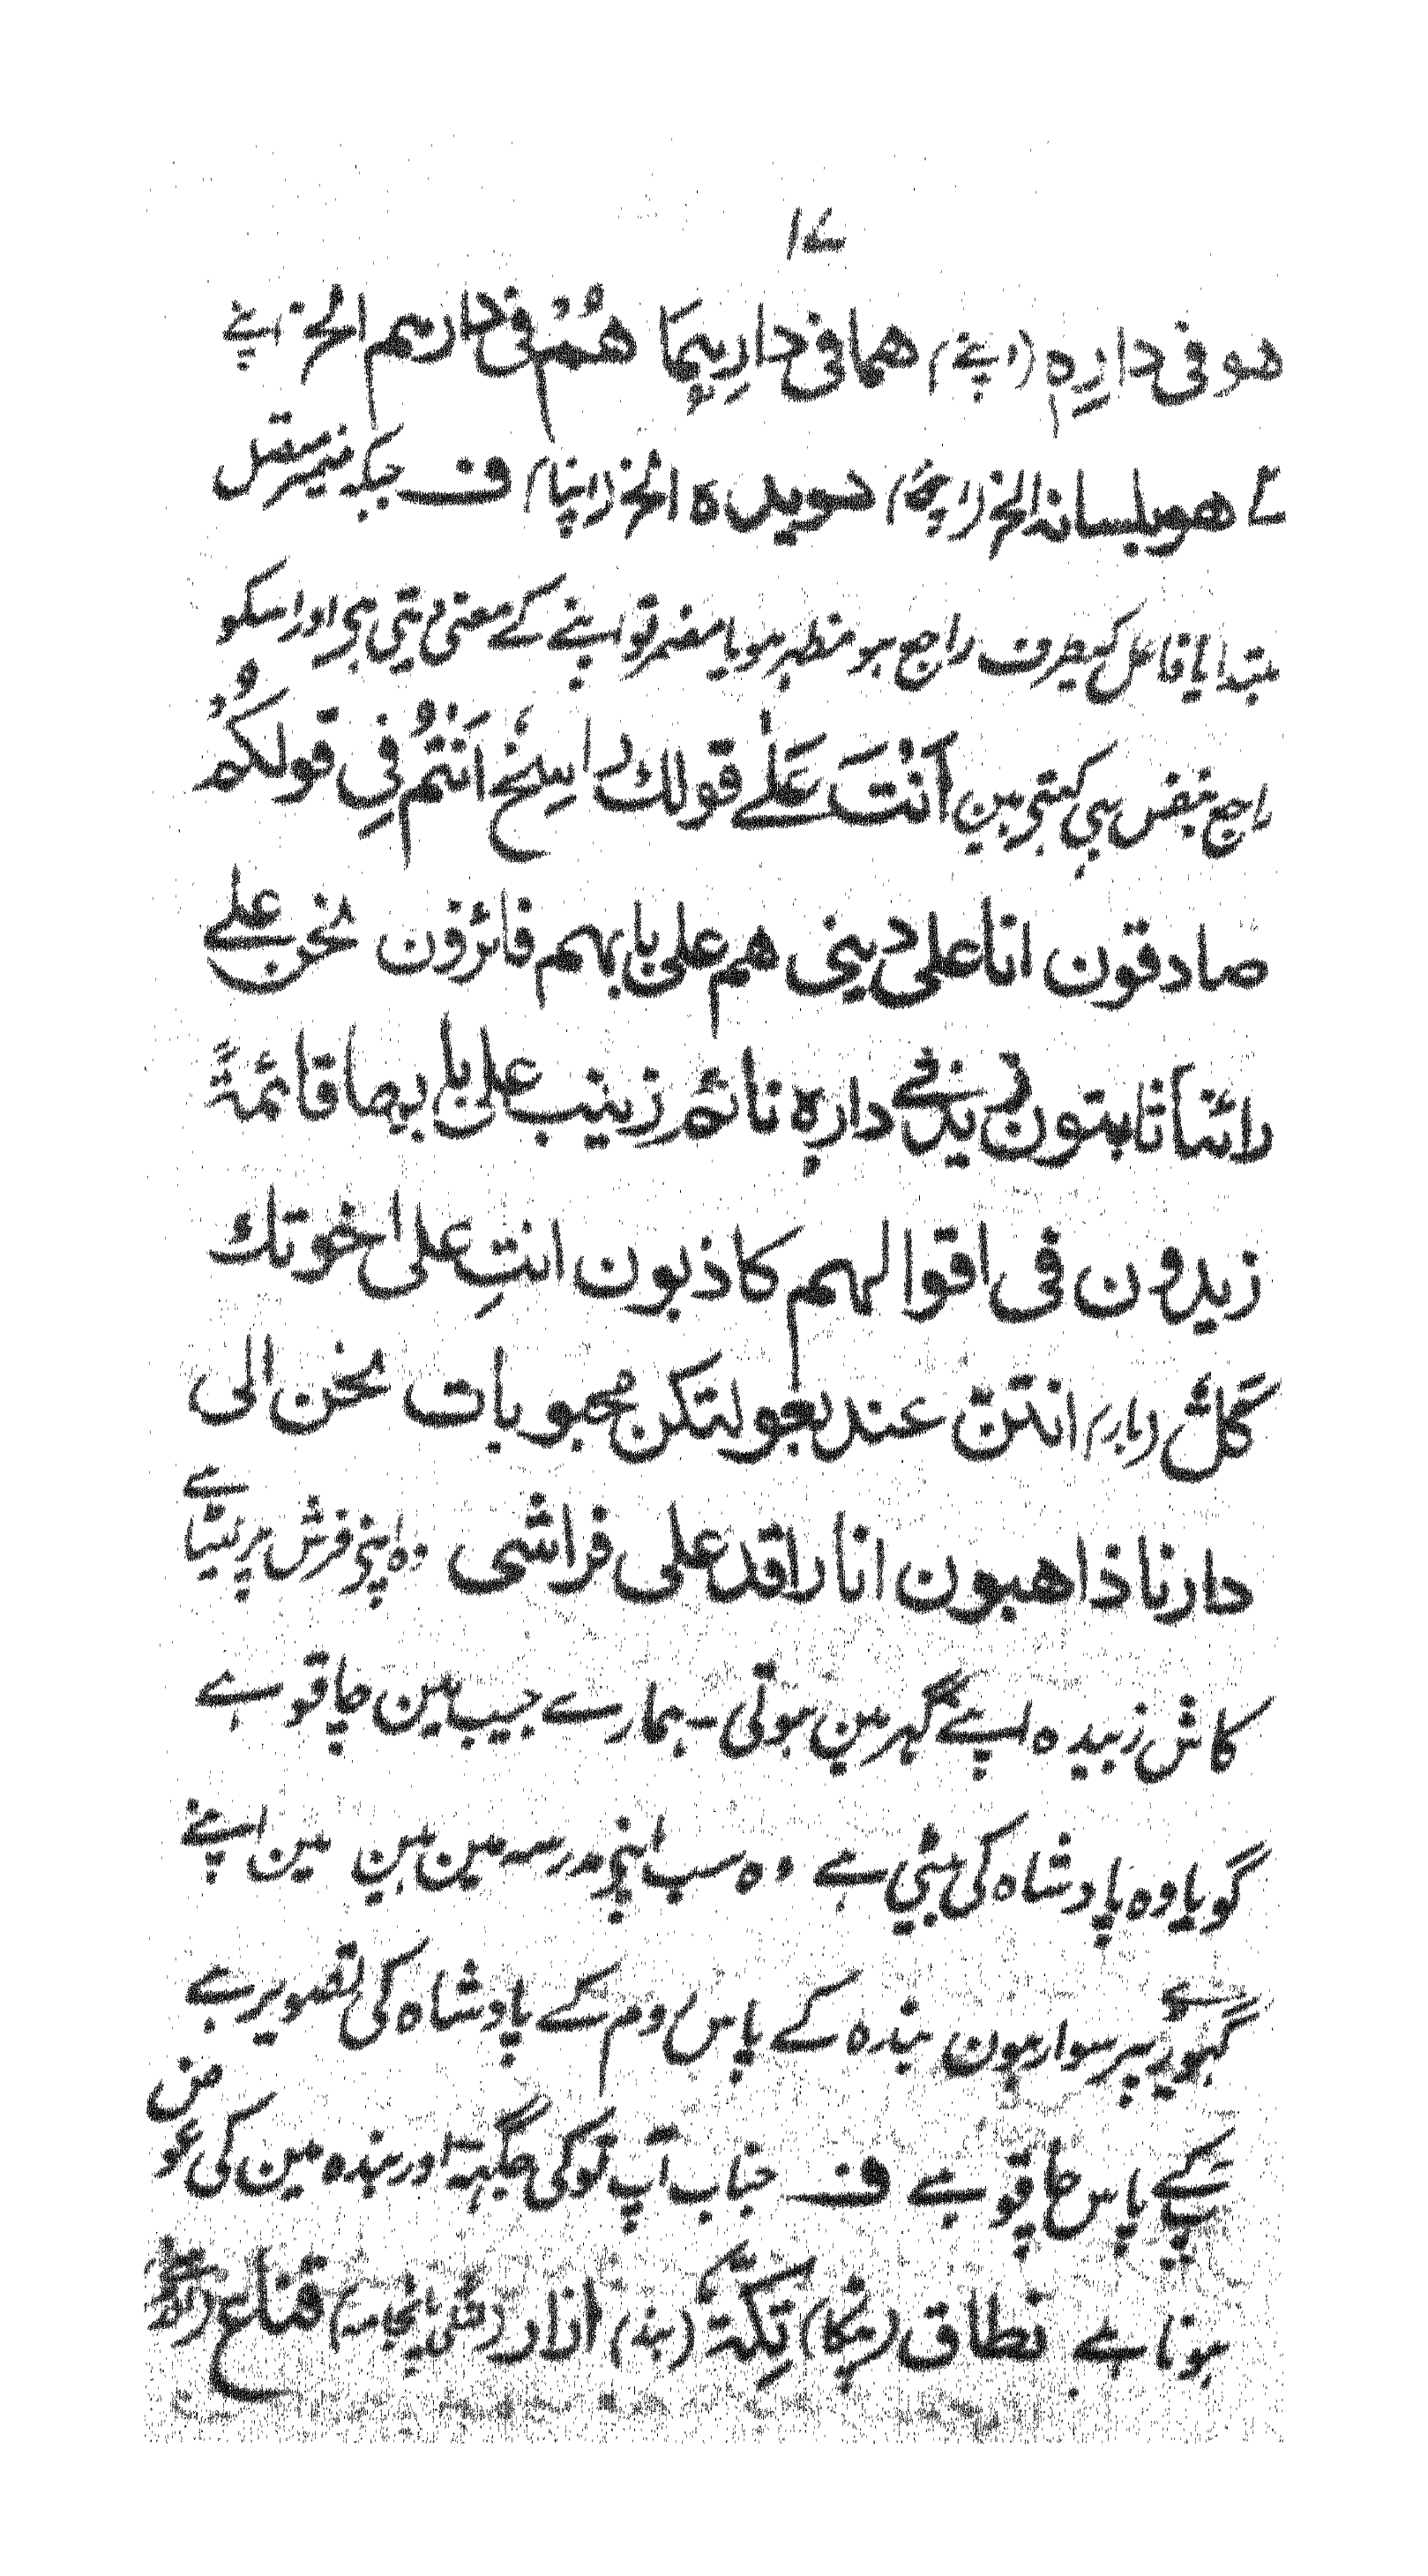 ۱۷
هو فی دارِہٖ (اپنے) هما فی دارِہِمَا هُمْ فی دارہم الخ اپنے
ے هو بلسانہ الخ (اپنی) هو یدہ الخ (اپنا) ف جبکہ ضمیر متصل
مبتدا یا فاعل کیطرف راجع ہو مظہر ہو یا مضمر تو اپنے کے معنی دیتی ہی اور اسکو
راجع بنفس ہی کہتی ہین اَنْتَ عَلٰے قولك راسِخٌ اَنْتُمْ فِی قولکُمْ
صادقون انا علی دینی هم علی بابہم فائزون نحن علے
رائنا ثابتون زیدٌ فی دارہٖ نائم زینب علی بابہا قائمۃً
زیدون فی اقوالہم کاذبون انتِ علی اخوتك
گلٌّ (بار) انتنّ عند بعولتکن محبوبات نحن الی
دارنا ذاهبون انا راقد علی فراشی وہ اپنی فرش پر لیٹا ہے
کاش زبیدہ اپنے گہر مین ہوتی - ہمارے جیب مین چاقو ہے
گویا وہ پادشاہ کی بیٹی ہے وہ سب اپنی مدرسہ مین ہین مین اپنے
گہوڑے پر سوار ہون بندہ کے پاس روم کے پادشاہ کی تصویر ہے
آپکے پاس چاقو ہے ف جناب آپ تو کی جگہہ اور بندہ مین کی عوض
ہوتا ہے نطاق (پٹکا) تِکّۃ (بند) ازار (پائجامہ) قناع